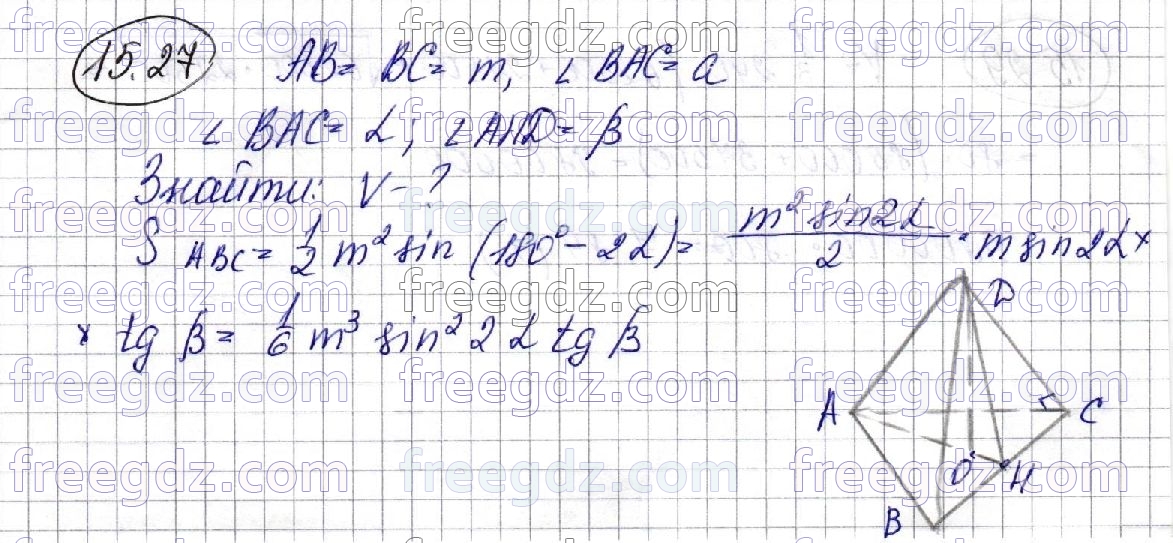 15.27 AB = BC = m, ∠ BAC = a
∠ BAC = α; ∠ AHD = β
Знайти: V - ?
S ABC = 1/2 m² sin (180° - 2α) = m² sin2α / 2 · m sin2α ×
× tg β = 1/6 m³ sin² 2α tg β
D
A
C
O
H
B
freegdz.com